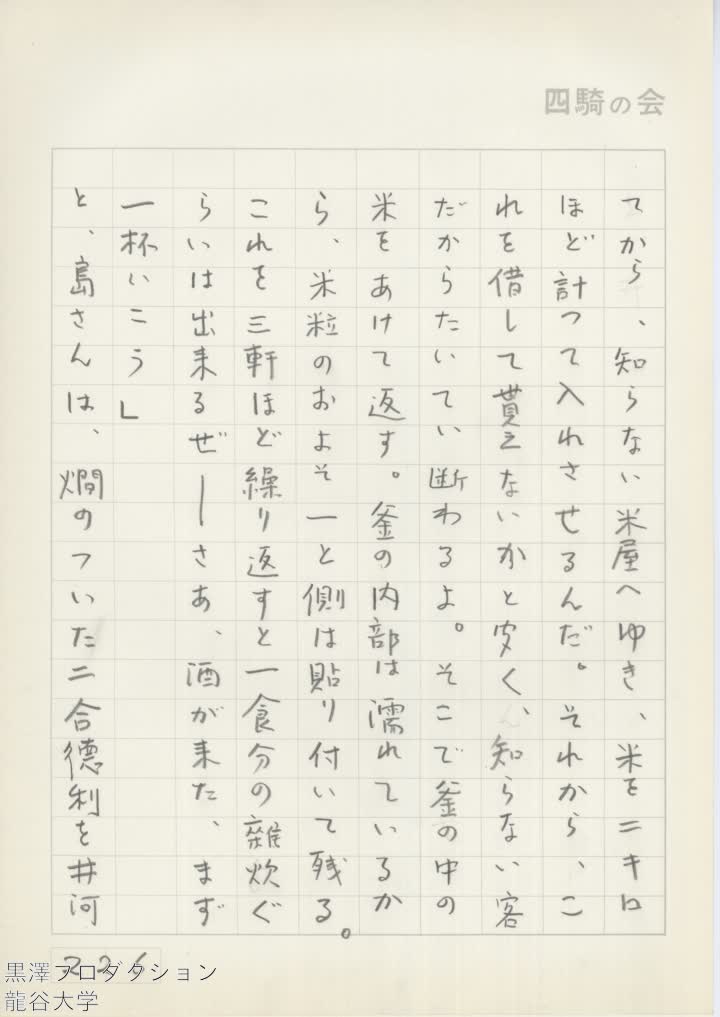 四騎の会
てから、知らない米屋へゆき、米を二キロ
ほど計つて入れさせるんだ。それから、こ
れを借して貰えないかと安く、知らない客
だからたいてい断わるよ。そこで釜の中の
米をあけて返す。釜の内部は濡れているか
ら、米粒のおよそ一と側は貼り付いて残る。
これを三軒ほど繰り返すと一食分の雑炊ぐ
らいは出来るぜ――さあ、酒が来た、まず
一杯いこう」
と、島さんは、燗のついた二合徳利を井河
226
黒澤プロダクション
龍谷大学